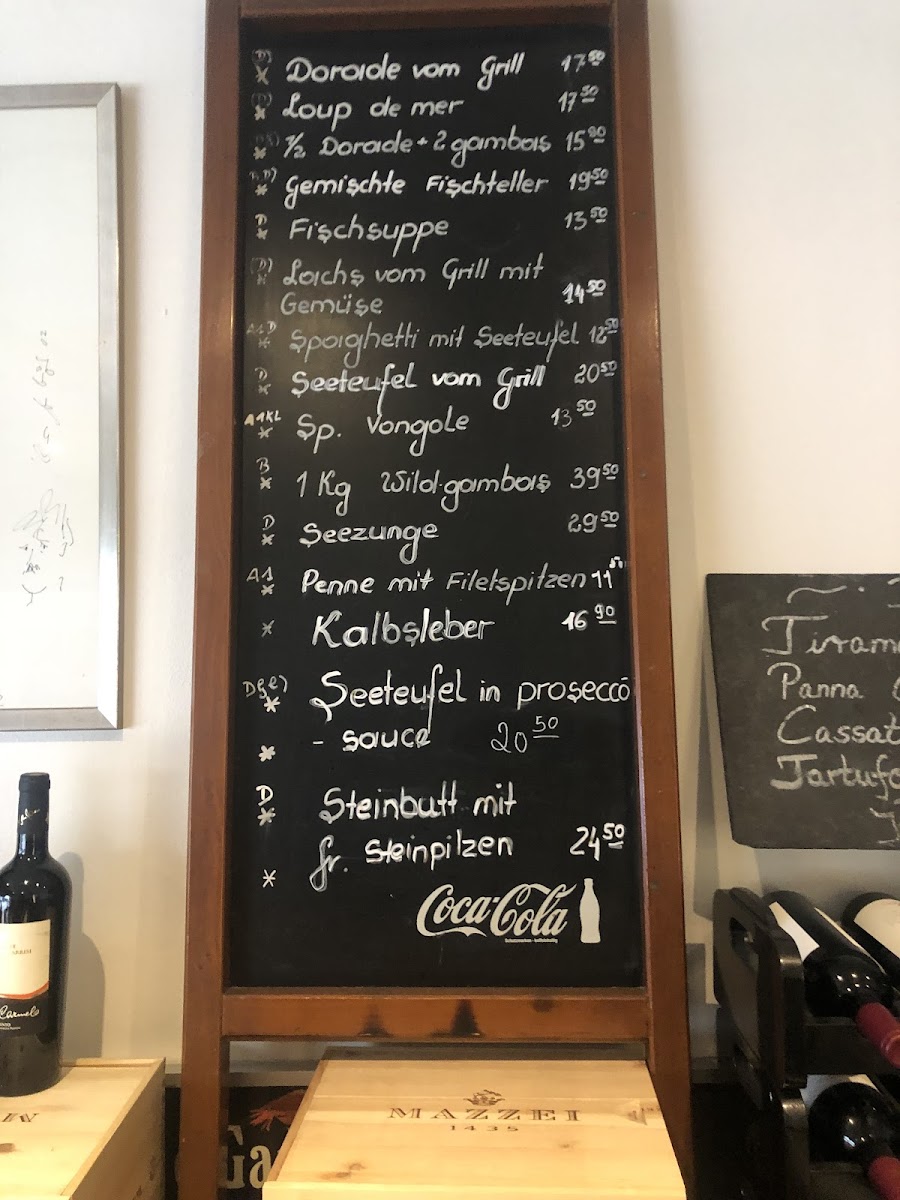 D) * Dorade vom Grill 17⁵⁰
(D) * Loup de mer 17⁵⁰
* ½ Dorade + 2 gambas 15⁹⁰
B,D) * Gemischte Fischteller 19⁵⁰
D * Fischsuppe 13⁵⁰
(D) * Lachs vom Grill mit
Gemüse 14⁵⁰
A1D * Spaghetti mit Seeteufel 12⁵⁰
D * Seeteufel vom Grill 20⁵⁰
A1KL * Sp. Vongole 13⁵⁰
B * 1 Kg Wildgambas 39⁵⁰
D * Seezunge 29⁵⁰
A1 * Penne mit Filetspitzen 11⁵⁰
* Kalbsleber 16⁹⁰
Dge) * Seeteufel in prosecco
* - sauce 20⁵⁰
D * Steinbutt mit
* fr. Steinpilzen 24⁵⁰
Coca-Cola
Tiram
Panna
Cassat
Tartufo
Carmelo
MAZZEI
1435